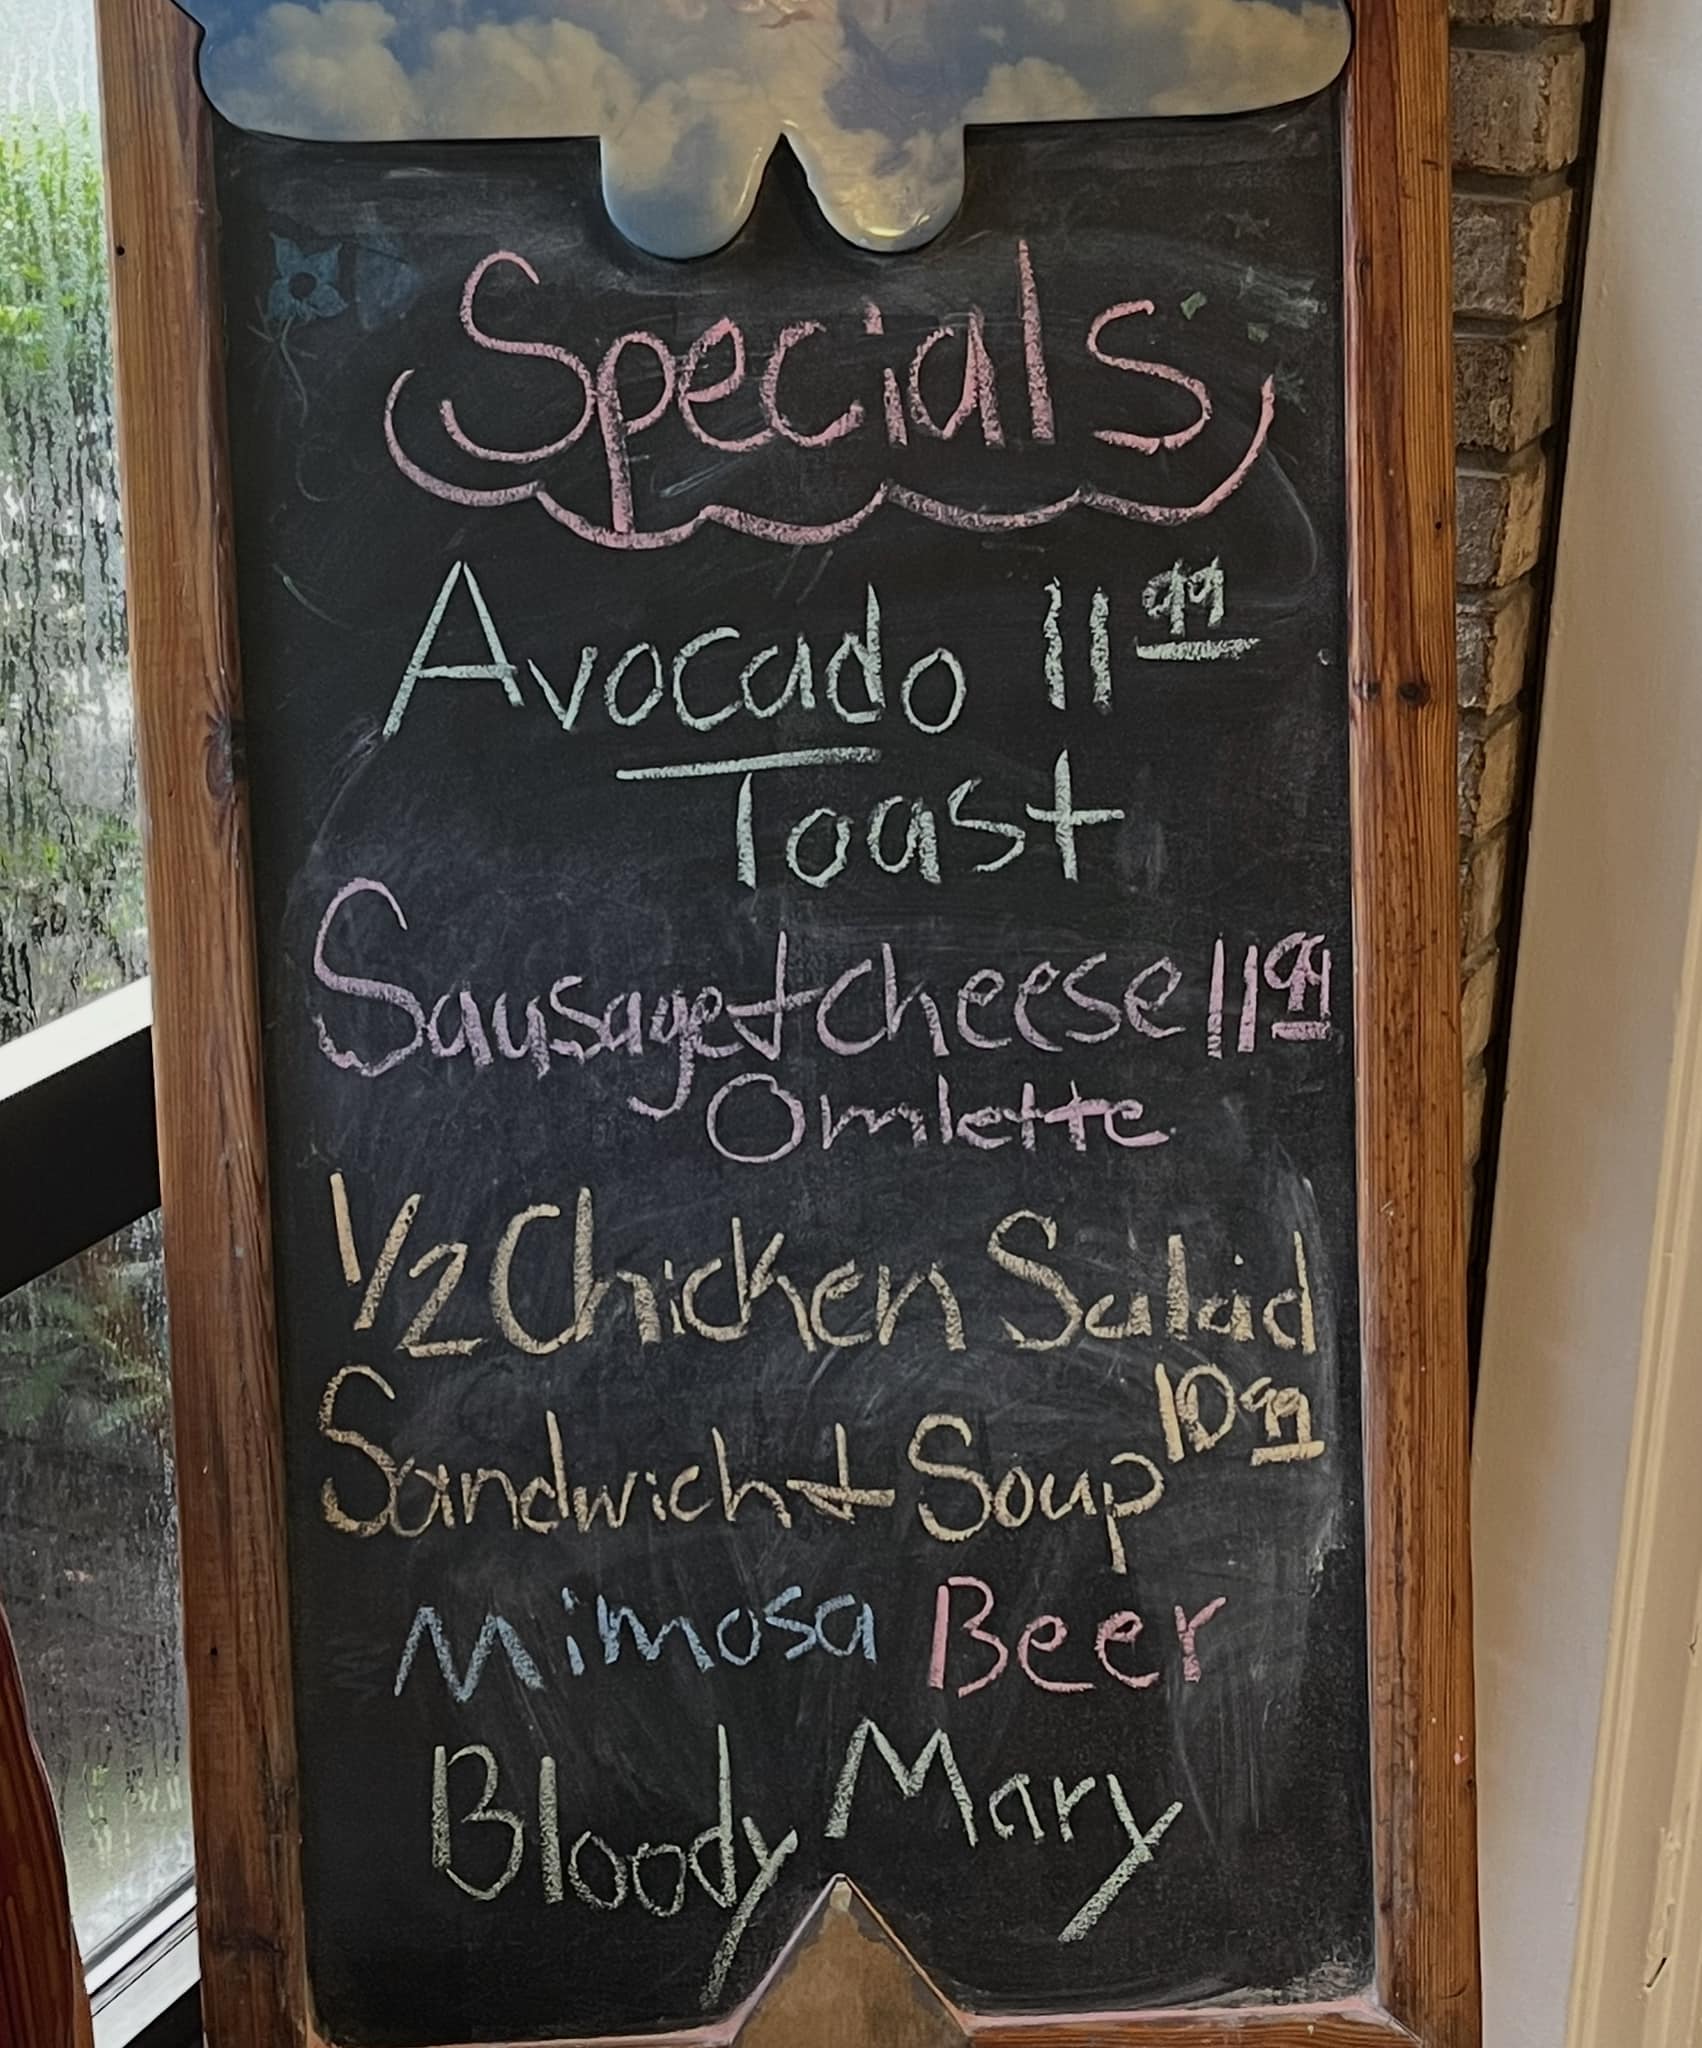 Specials
Avocado 11 99
Toast
Sausage + Cheese 11 99
Omlette
1/2 Chicken Salad
Sandwich + Soup 10 99
Mimosa Beer
Bloody Mary